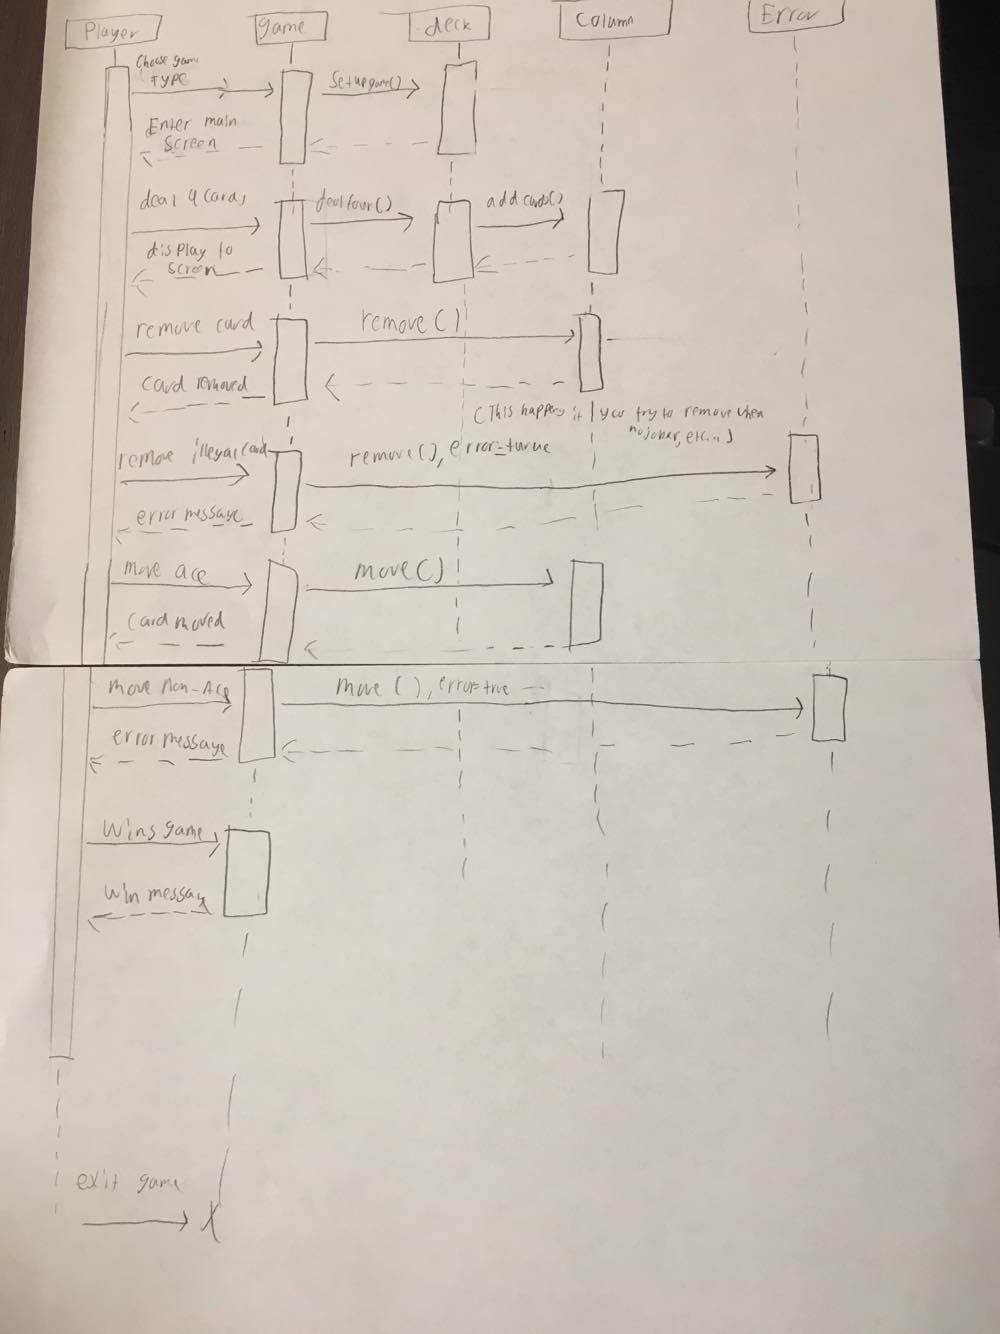 Player
game
deck
Column
Error
Choose game
TYPE
Setupgame()
Enter main
screen
deal 4 Cards
dealfour()
add cards()
display to
screen
remove card
remove ()
Card removed
(This happens if you try to remove when
no joker, etc...)
remove illegal card
remove(), error=turue
error message
move ace
move()
Card moved
move Non-Ace
move (), error=true
error message
Wins game
Win messag
exit game
X